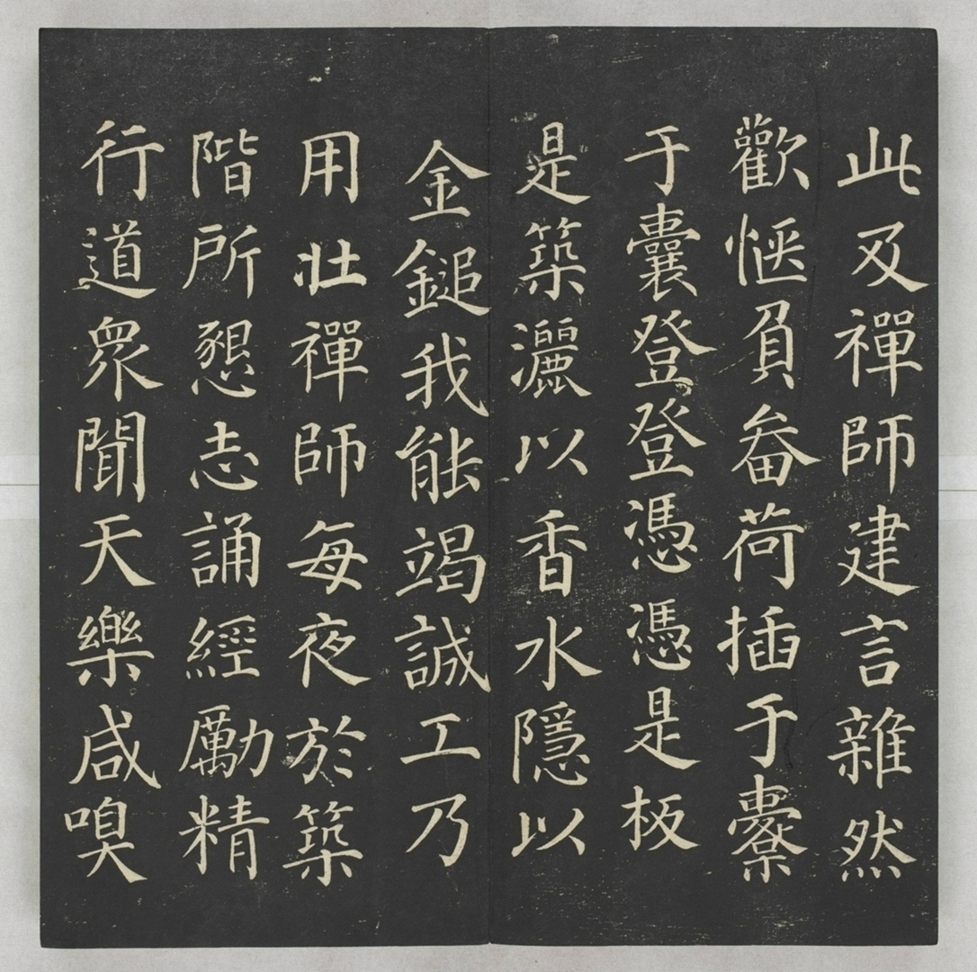 此及禪師建言雜然
歡愜負畚荷插于橐
于囊登登憑憑是板
是築灑以香水隱以
金鎚我能竭誠工乃
用壯禪師每夜於築
階所懇志誦經勵精
行道眾聞天樂咸嗅